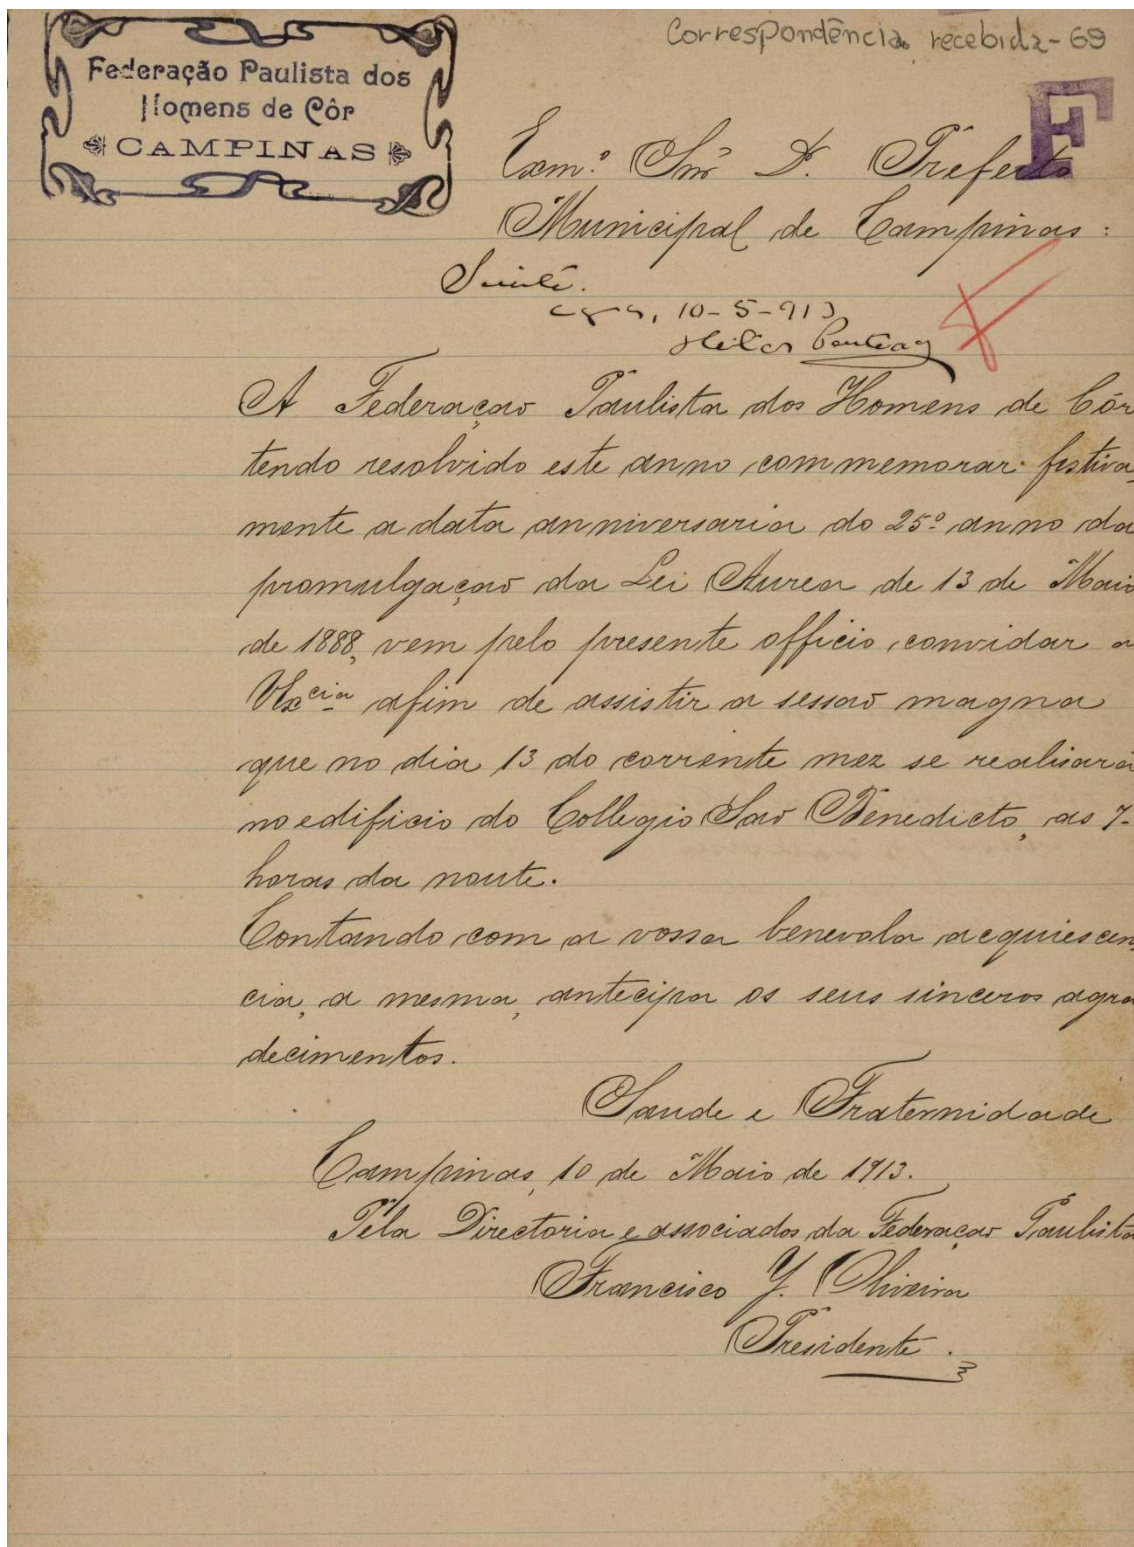 Correspondência recebida-69
Federação Paulista dos
Homens de Côr
CAMPINAS
F
Exmº Snr D. Prefeito
Municipal de Campinas:
10-5-913
A Federaçao Paulista dos Homens de Côr
tendo resolvido este anno commemorar festiva
mente a data anniversaria do 25º anno da
promulgaçao da Lei Aurea de 13 de Maio
de 1888, vem pelo presente officio, convidar a
VExcia afim de assistir a sessao magna
que no dia 13 do corrente mez se realisará
no edificio do Collegio Sao Benedicto, as 7-
horas da noute.
Contando com a vossa benevola acquiescen
cia, a mesma, antecipa os seus sinceros agra
decimentos.
Saude e Fraternidade
Campinas, 10 de Maio de 1913.
Pela Directoria e associados da Federaçao Paulista
Francisco J. Oliveira
Presidente.